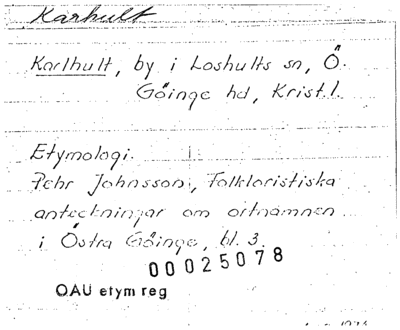 Karhult
Karlhult, by i Loshults sn, Ö.
Göinge hd, Krist.l.
Etymologi.
Pehr Johnsson, Folkloristiska
anteckningar om ortnamnen
i Östra Göinge, bl. 3.
00025078
OAU etym reg